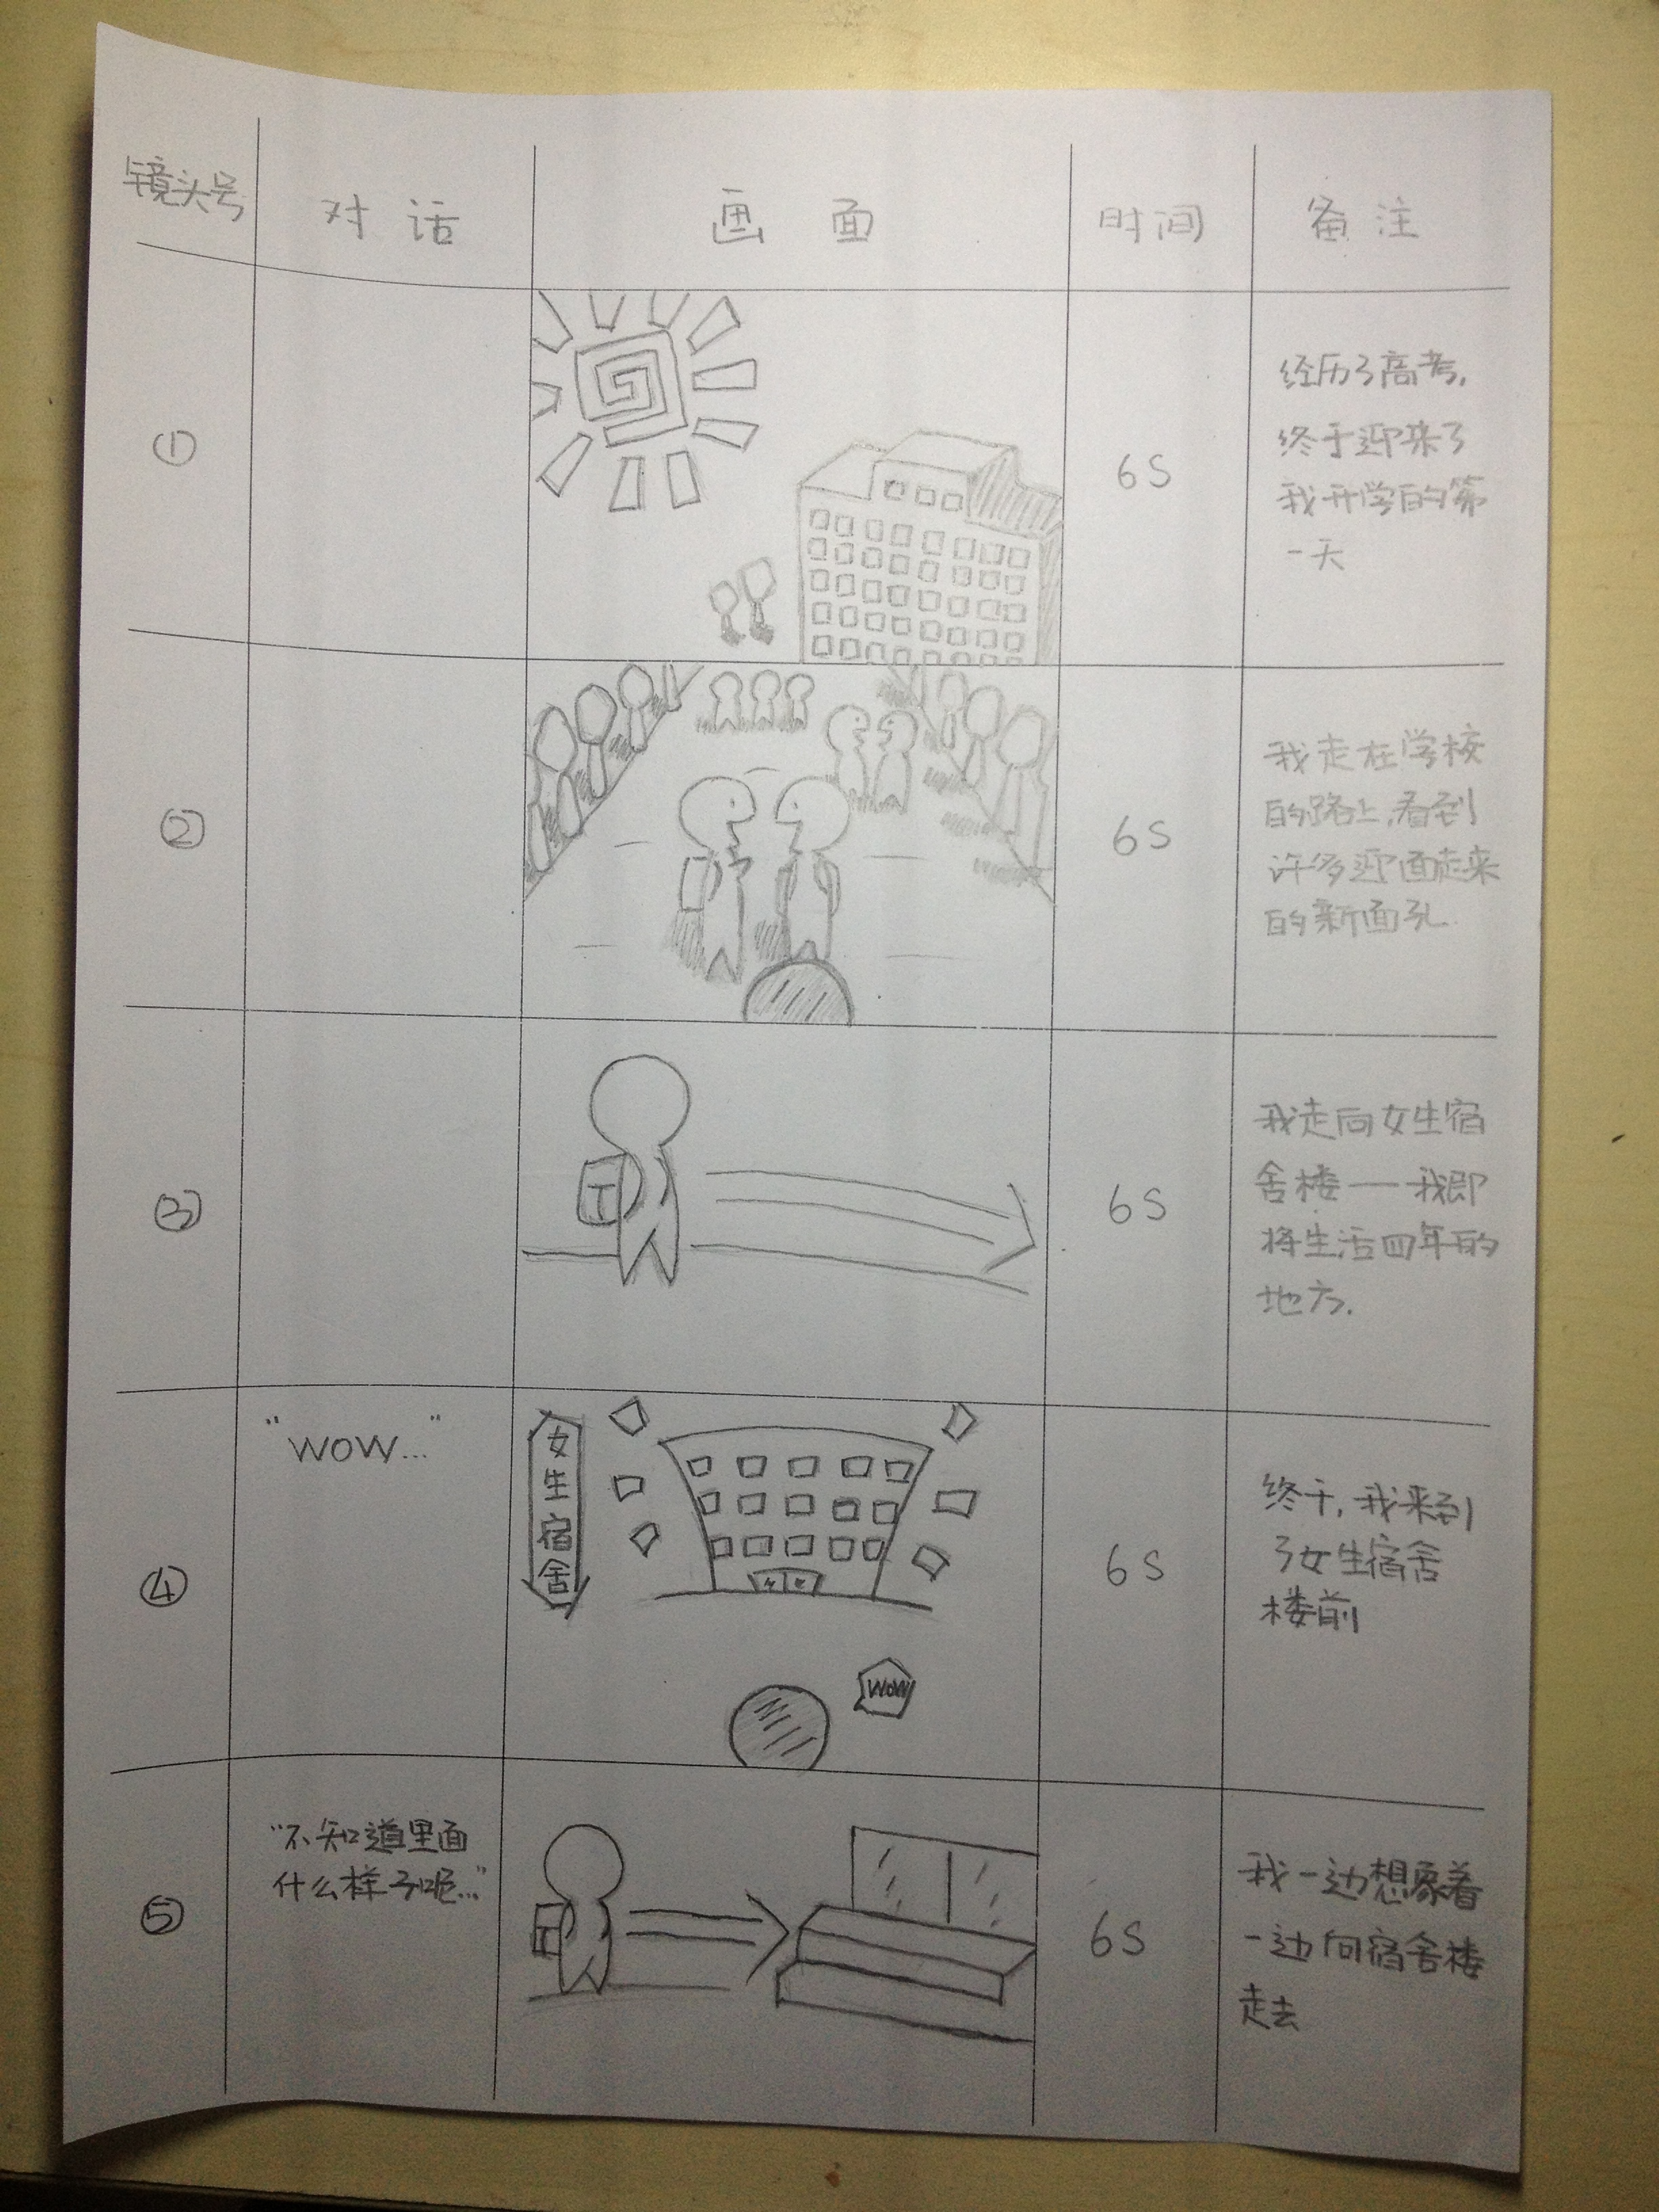 镜头号 对话 画面 时间 备注
① 6S
经历了高考,
终于迎来了
我开学的第
一天
② 6S
我走在学校
的路上,看到
许多迎面走来
的新面孔.
③ 6S
我走向女生宿
舍楼——我即
将生活四年的
地方.
④ "WOW..." 6S
女生宿舍
WOW
终于,我来到
了女生宿舍
楼前
⑤ 6S
"不知道里面
什么样子呢..."
我一边想象着
一边向宿舍楼
走去